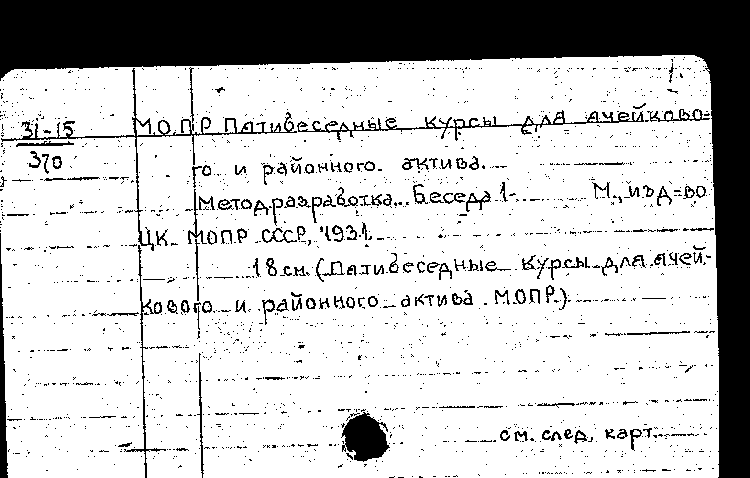 1.
31-15
370
М.О.П.Р. Пятибеседные курсы для ячейково=
го и районного актива.
Методразработка. Беседа 1- М., изд=во
ЦК МОПР СССР, 1931.
18 см. (Пятибеседные курсы для ячей-
кового и районного актива. МОПР.)
см. след. карт.